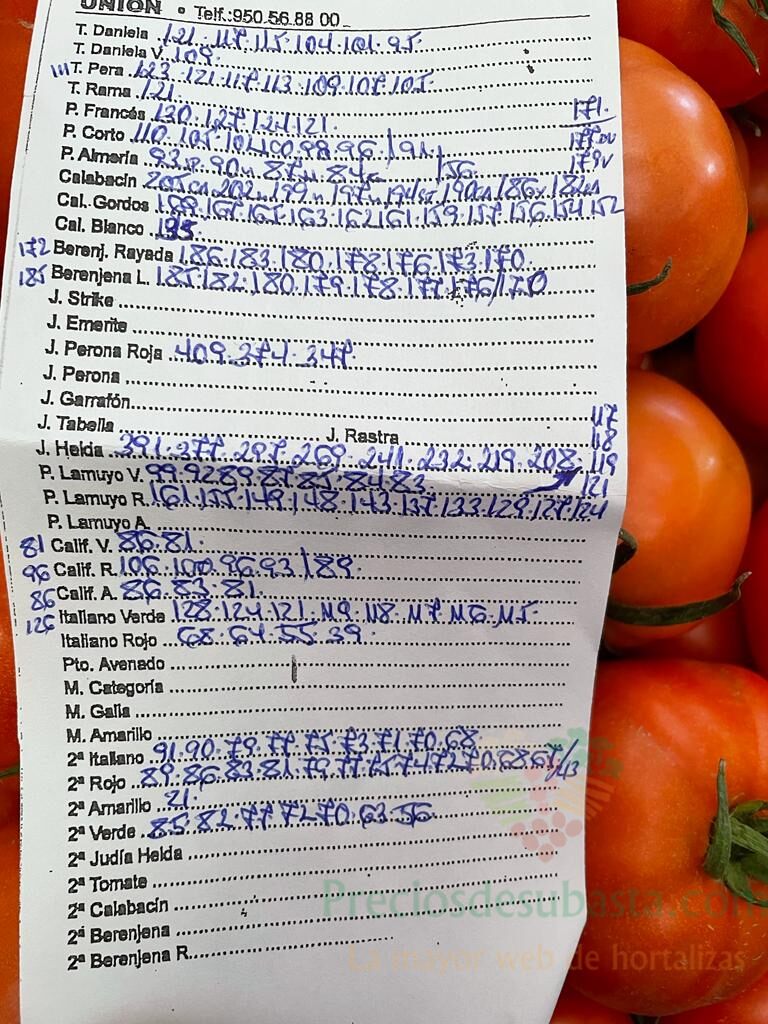 UNIÓN • Telf.:950.56.88 00
T. Daniela 121. 117. 115. 104. 101. 95.
T. Daniela V. 109.
111 T. Pera 123. 121. 117. 113. 109. 107. 105.
T. Rama 121.
P. Francés 130. 127. 124. 121. 171.
P. Corto 110. 105. 104. 100. 98. 96. / 91.
P. Almería 93. 90. 87. 84. / 156. 179v
Calabacín 205. 202. 199. 197. 194. 190. 186. 182.
Cal. Gordos 167. 165. 163. 162. 161. 159. 157. 156. 154. 152
Cal. Blanco 195.
172 Berenj. Rayada 186. 183. 180. 178. 176. 173. 170.
185 Berenjena L. 185. 182. 180. 179. 178. 177. 176/170
J. Strike
J. Emerite
J. Perona Roja 409. 374. 347.
J. Perona
J. Garrafón
117
J. Tabella J. Rastra 118
J. Helda 391. 377. 297. 269. 241. 232. 219. 208. 119
P. Lamuyo V. 99. 92 89. 87. 85. 84. 83 121
P. Lamuyo R. 161. 155. 149. 148. 143. 137. 133. 129. 127. 124
P. Lamuyo A.
81 Calif. V. 86. 81.
96 Calif. R. 106. 100. 96. 93 / 89.
86 Calif. A. 86. 83. 81
126 Italiano Verde 128. 124. 121. 119. 118. 117. 116. 115.
Italiano Rojo 68. 64. 55. 39.
Pto. Avenado
M. Categoría
M. Galia
M. Amarillo
2ª Italiano 91. 90. 79. 77. 75. 73. 71. 70. 68.
2ª Rojo 89. 86. 83. 81. 79. 77. 75. 74. 72. 70. 68 67/43
2ª Amarillo 21.
2ª Verde 85 82. 77 72 70. 63. 56
2ª Judía Helda
2ª Tomate
2ª Calabacín
2ª Berenjena
2ª Berenjena R.
Preciosdesubasta.com
La mayor web de hortalizas